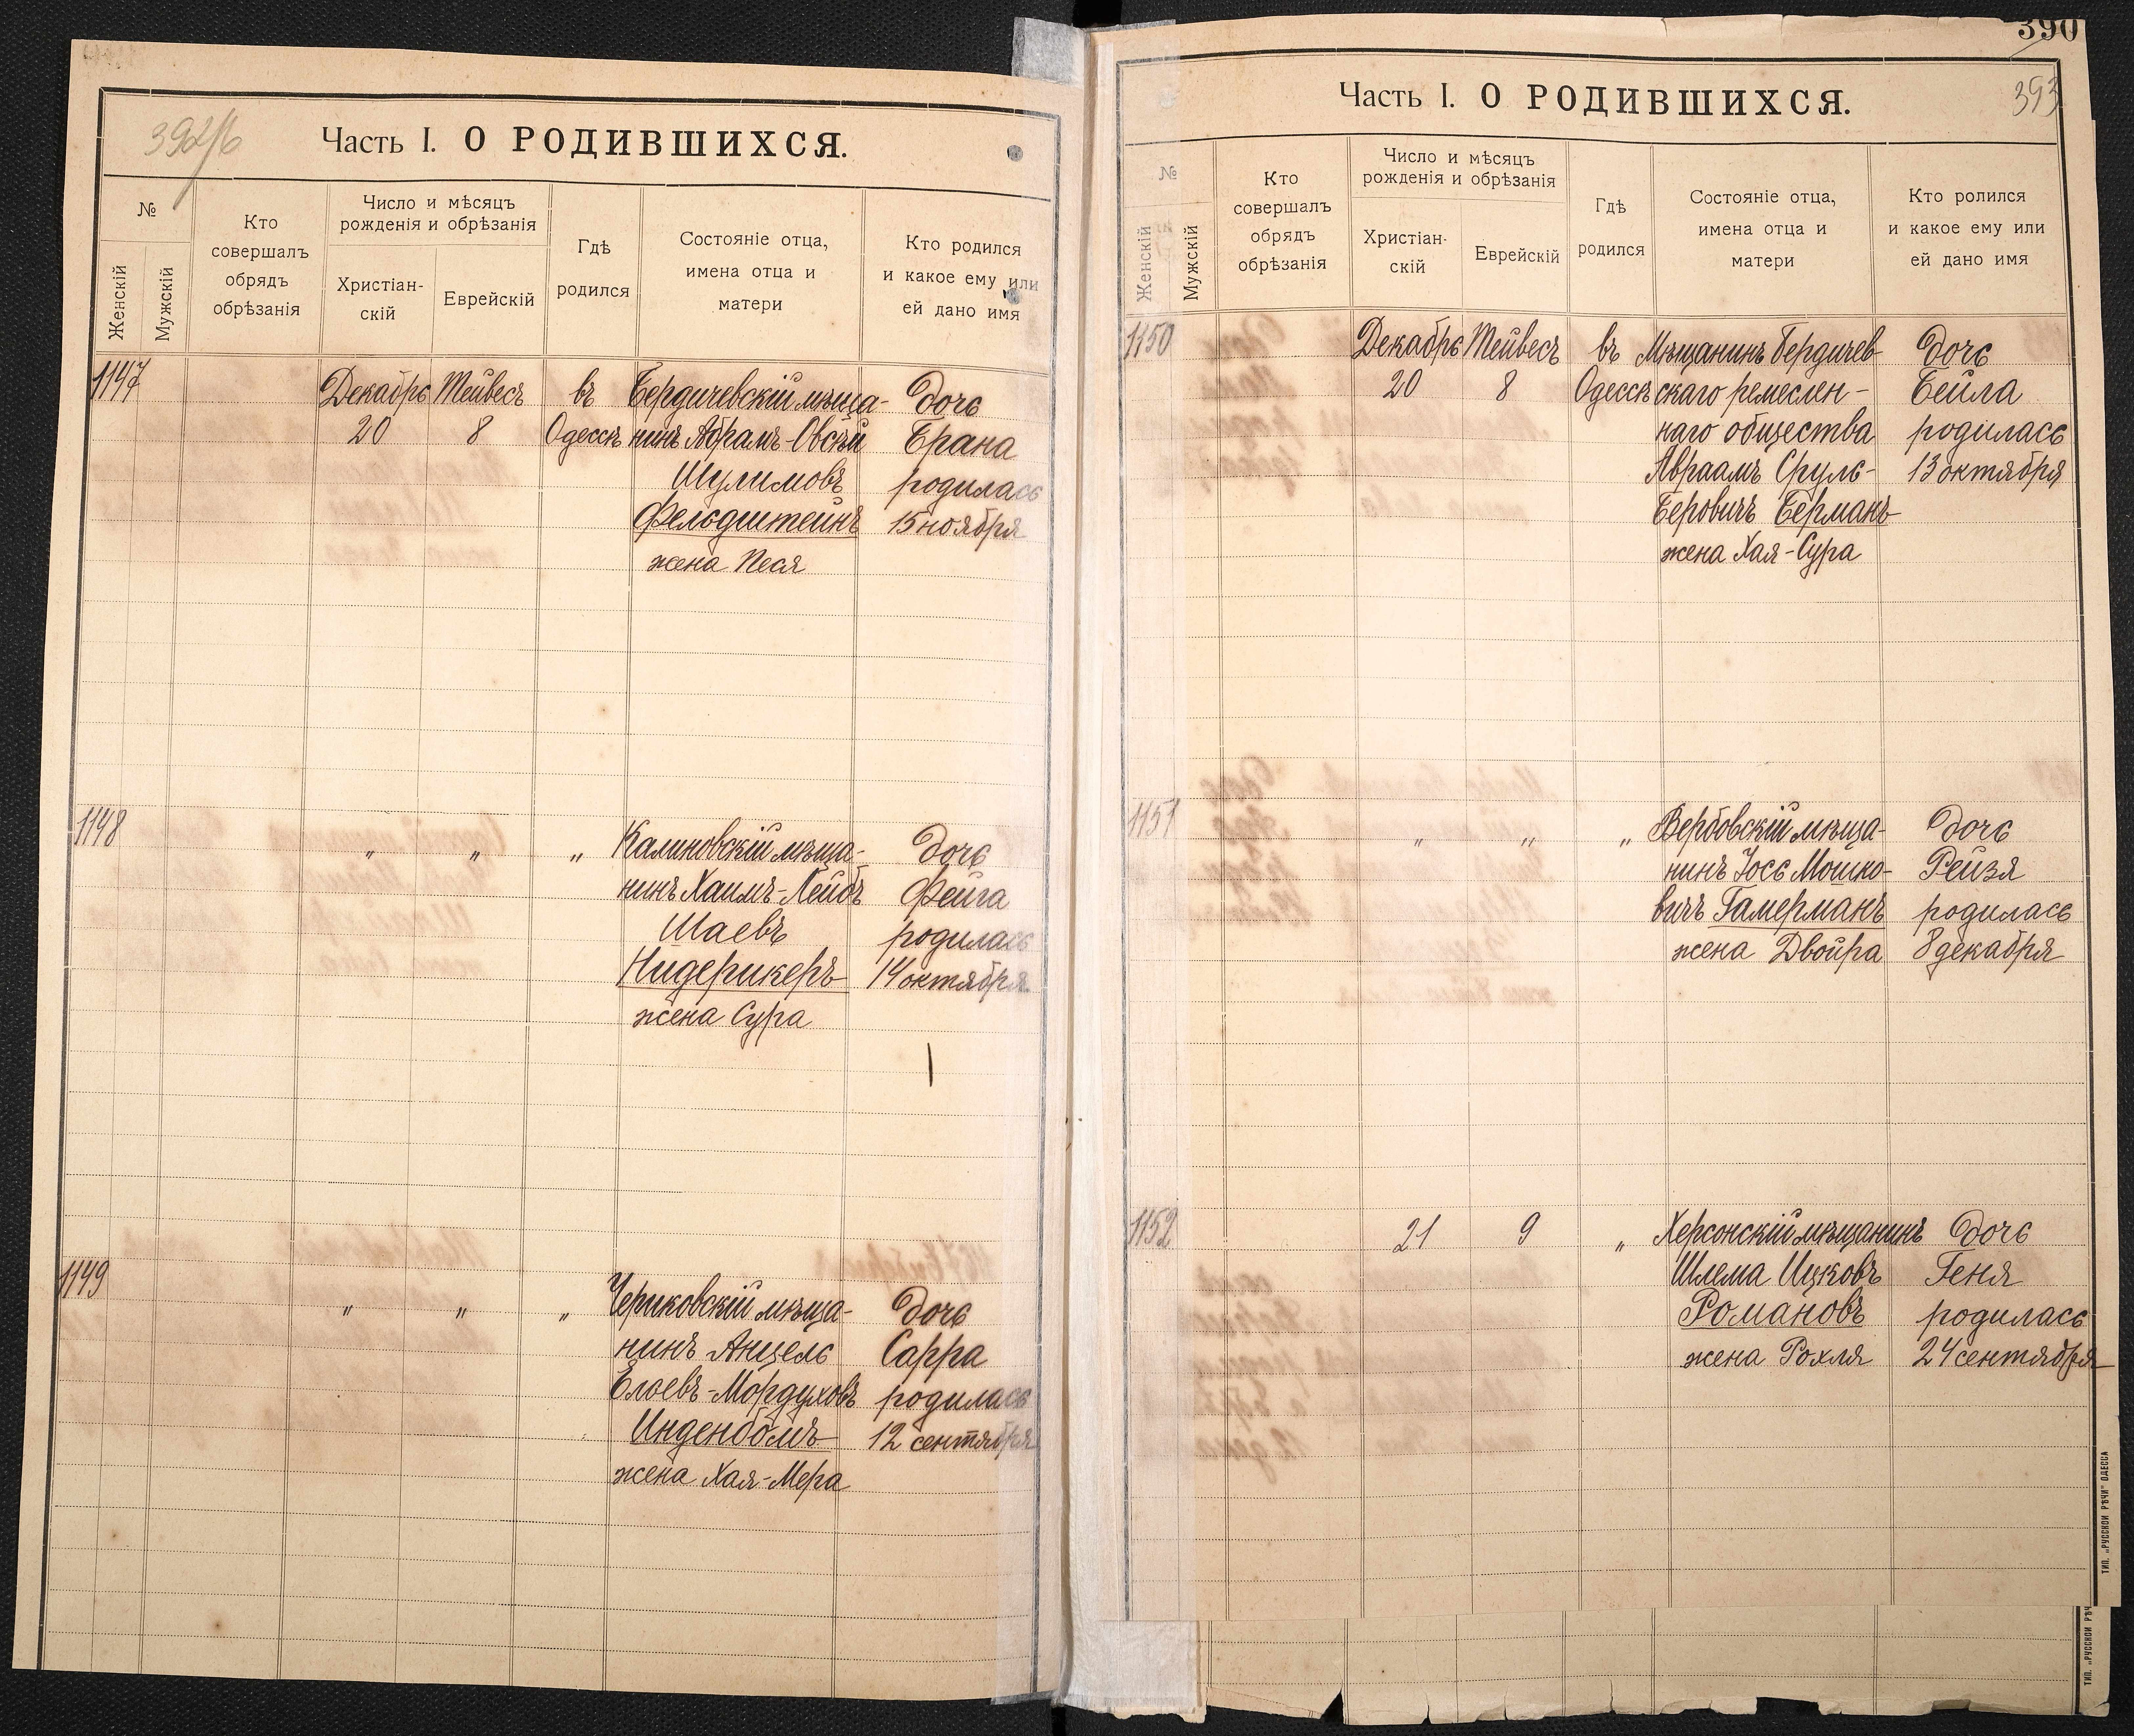 392/б
Часть I. О РОДИВШИХСЯ.
№
Женскій
Мужскій
Кто
совершалъ
обрядъ
обрѣзанія
Число и мѣсяцъ
рожденія и обрѣзанія
Христіан-
скій
Еврейскій
Гдѣ
родился
Состояніе отца,
имена отца и
матери
Кто родился
и какое ему или
ей дано имя
1147
Декабрь
20
Тейвесъ
8
въ
Одессѣ
Бердичевскій мѣща-
нинъ Абрамъ-Овсѣй
Шулимовъ
Фельдштейнъ
жена Песя
дочь
Брана
родилась
15 ноября
1148
" " "
Калиновскій мѣща-
нинъ Хаимъ-Лейбъ
Шаевъ
Нидерикеръ
жена Сура
дочь
Фейга
родилась
14 октября
1149
" " "
Чериковскій мѣща-
нинъ Анцель
Елоевъ-Мордуховъ
Инденбомъ
жена Хая-Мера
дочь
Сарра
родилась
12 сентября
390
393
Часть I. О РОДИВШИХСЯ.
№
Женскій
Мужскій
Кто
совершалъ
обрядъ
обрѣзанія
Число и мѣсяцъ
рожденія и обрѣзанія
Христіан-
скій
Еврейскій
Гдѣ
родился
Состояніе отца,
имена отца и
матери
Кто ролился
и какое ему или
ей дано имя
1150
Декабрь
20
Тейвесъ
8
въ
Одессѣ
Мѣщанинъ Бердичев-
скаго ремеслен-
наго общества
Авраамъ Сруль-
Беровичъ Берманъ
жена Хая-Сура
дочь
Бейла
родилась
13 октября
1151
" " "
Вербовскій мѣща-
нинъ Іось Мошко-
вичъ Гамерманъ
жена Двойра
дочь
Рейзя
родилась
8 декабря
1152
21
9
"
Херсонскій мѣщанинъ
Шлема Ицковъ
Романовъ
жена Рохля
дочь
Геня
родилась
24 сентября
ТИП. „РУССКОЙ РѢЧИ" ОДЕССА
ТИП. „РУССКОЙ РѢЧ